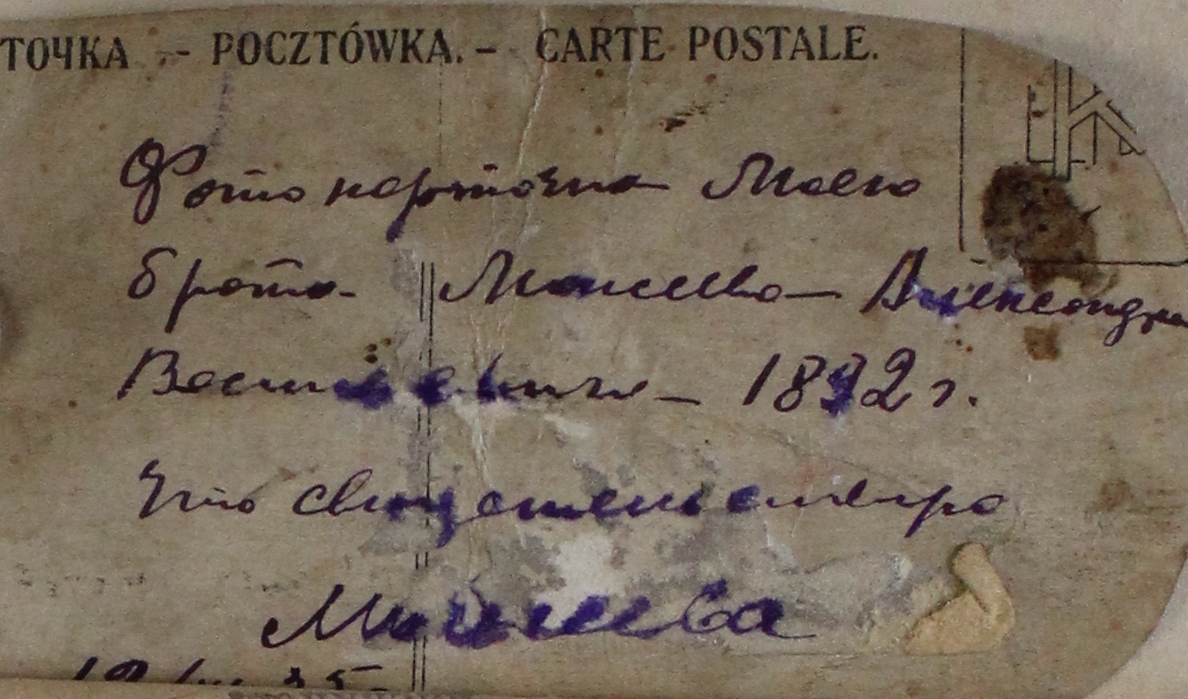 ТОЧКА - POCZTÓWKA. - CARTE POSTALE.
Фото карточка Моего
брата Моисеева Александра
Васильевича 1892 г.
Что свидетельствую
Моисеева